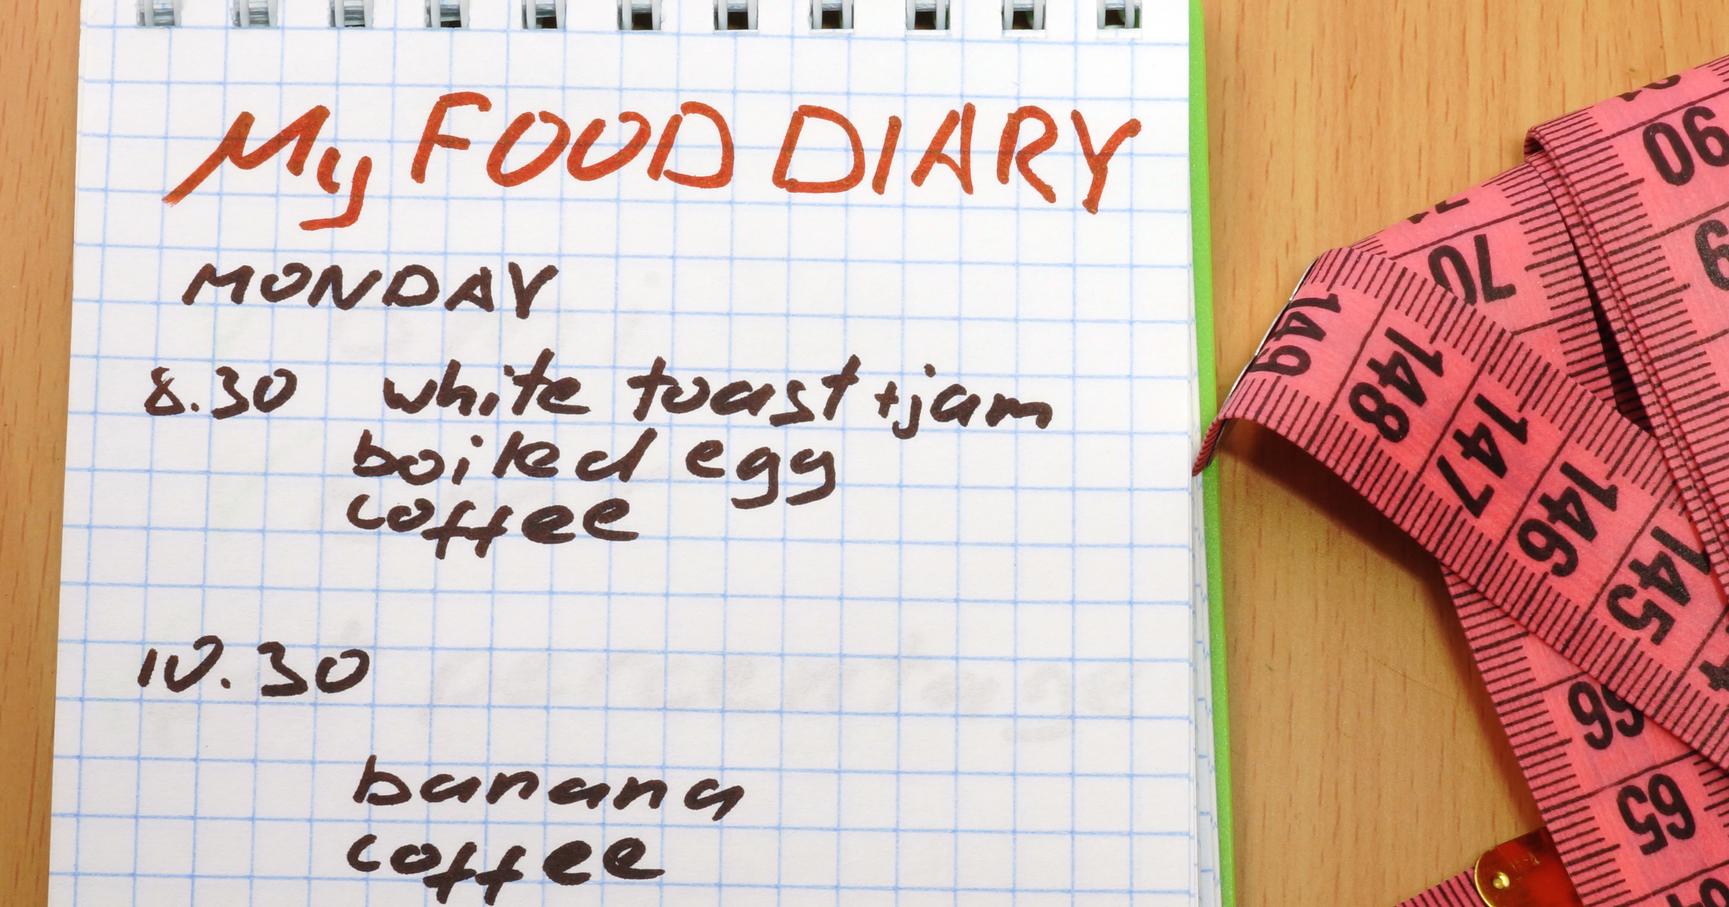 My FOOD DIARY
MONDAY
8.30 white toast +jam
boiled egg
coffee
10.30
banana
coffee
90
9
70
149
148
147
146
145
66
65